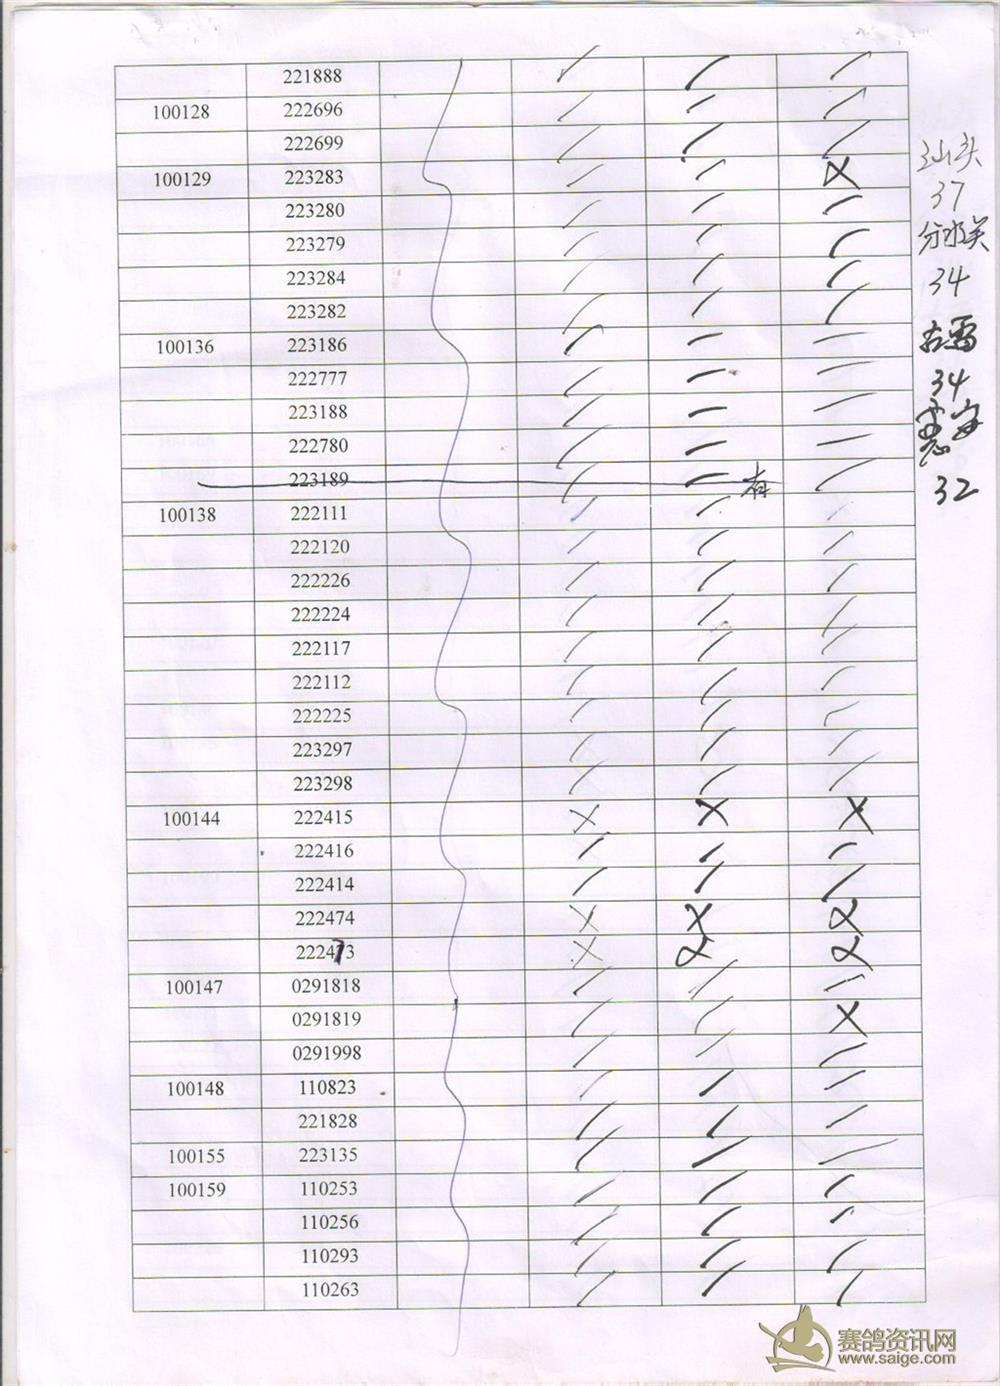 221888
100128 222696
222699
100129 223283
223280
223279
223284
223282
100136 223186
222777
223188
222780
223189 有
100138 222111
222120
222226
222224
222117
222112
222225
223297
223298
100144 222415
222416
222414
222474
222473
100147 0291818
0291819
0291998
100148 110823
221828
100155 223135
100159 110253
110256
110293
110263
汕头
37
分水关
34
34
惠安
32
赛鸽资讯网
www.saige.com